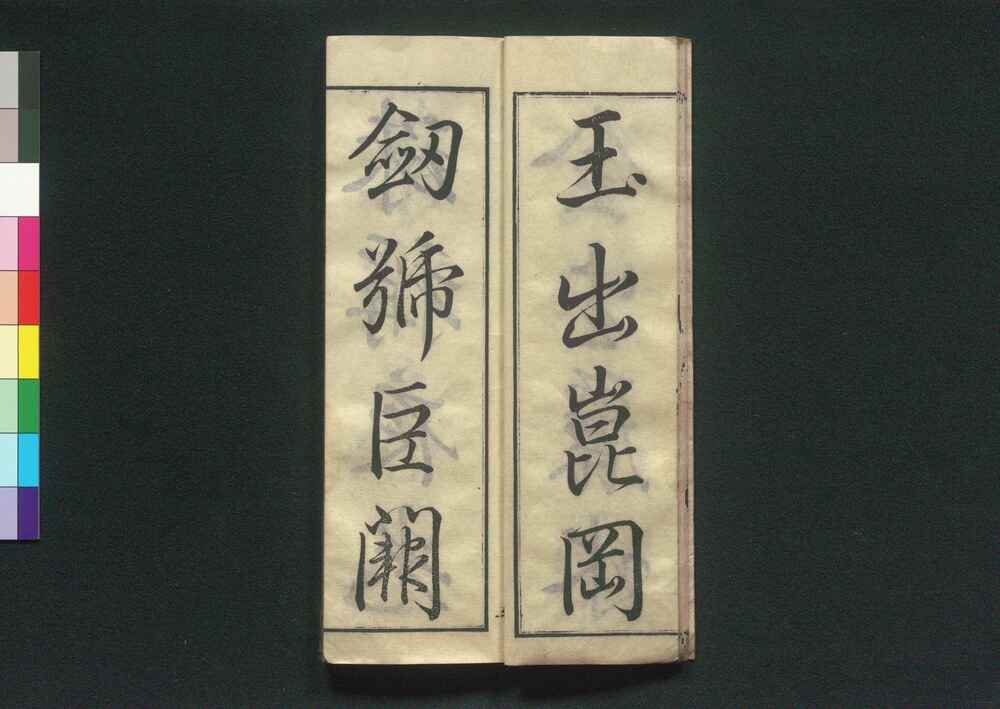 玉出崑岡
劔號巨闕